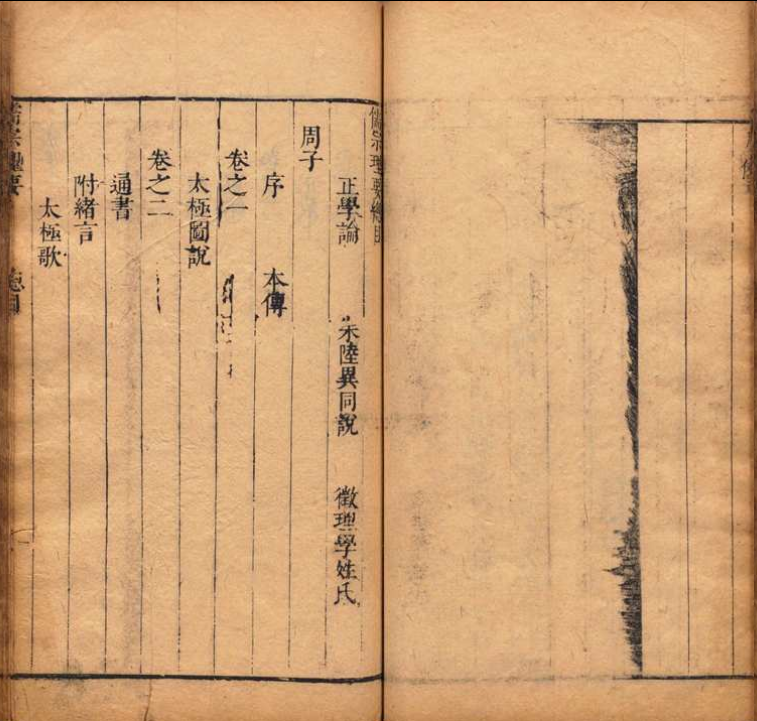 儒宗理要總目
正學論 朱陸異同說 徵理學姓氏
周子
序 本傳
卷之一
太極圖說
卷之二
通書
附緒言
太極歌
儒宗理要 總目